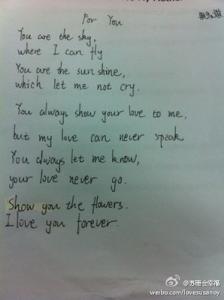 For You
You are the sky,
where I can fly
You are the sunshine,
which let me not cry.
You always show your love to me,
but my love can never speak
You always let me know,
your love never go.
Show you the flowers.
I love you forever.
weibo.com/lovesusanoy